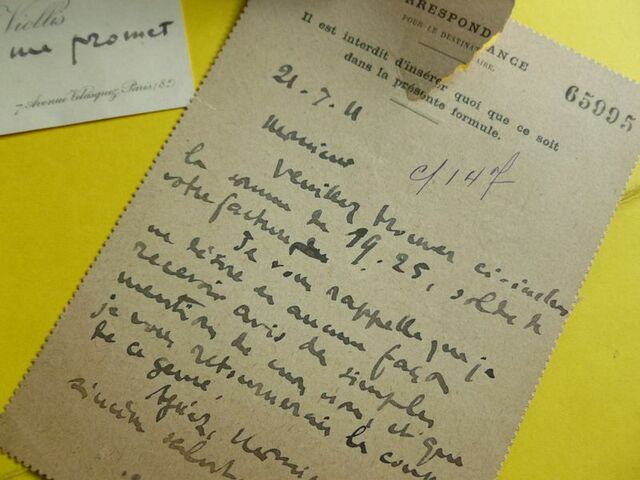 Viollis
me promet
7 Avenue Vélasquez Paris (8e)
CORRESPONDANCE
POUR LE DESTINATAIRE.
Il est interdit d'insérer quoi que ce soit
dans la présente formule.
65995
21.7.11
c/147
Monsieur
Veuillez trouver ci-inclus
la somme de 19.25, solde de
votre facture
Je vous rappelle que je
ne désire en aucune façon
recevoir avis de simples
mention de mon nom, et que
je vous retournerais les coup
de ce genre.
Agréez, Monsi
sincères salut